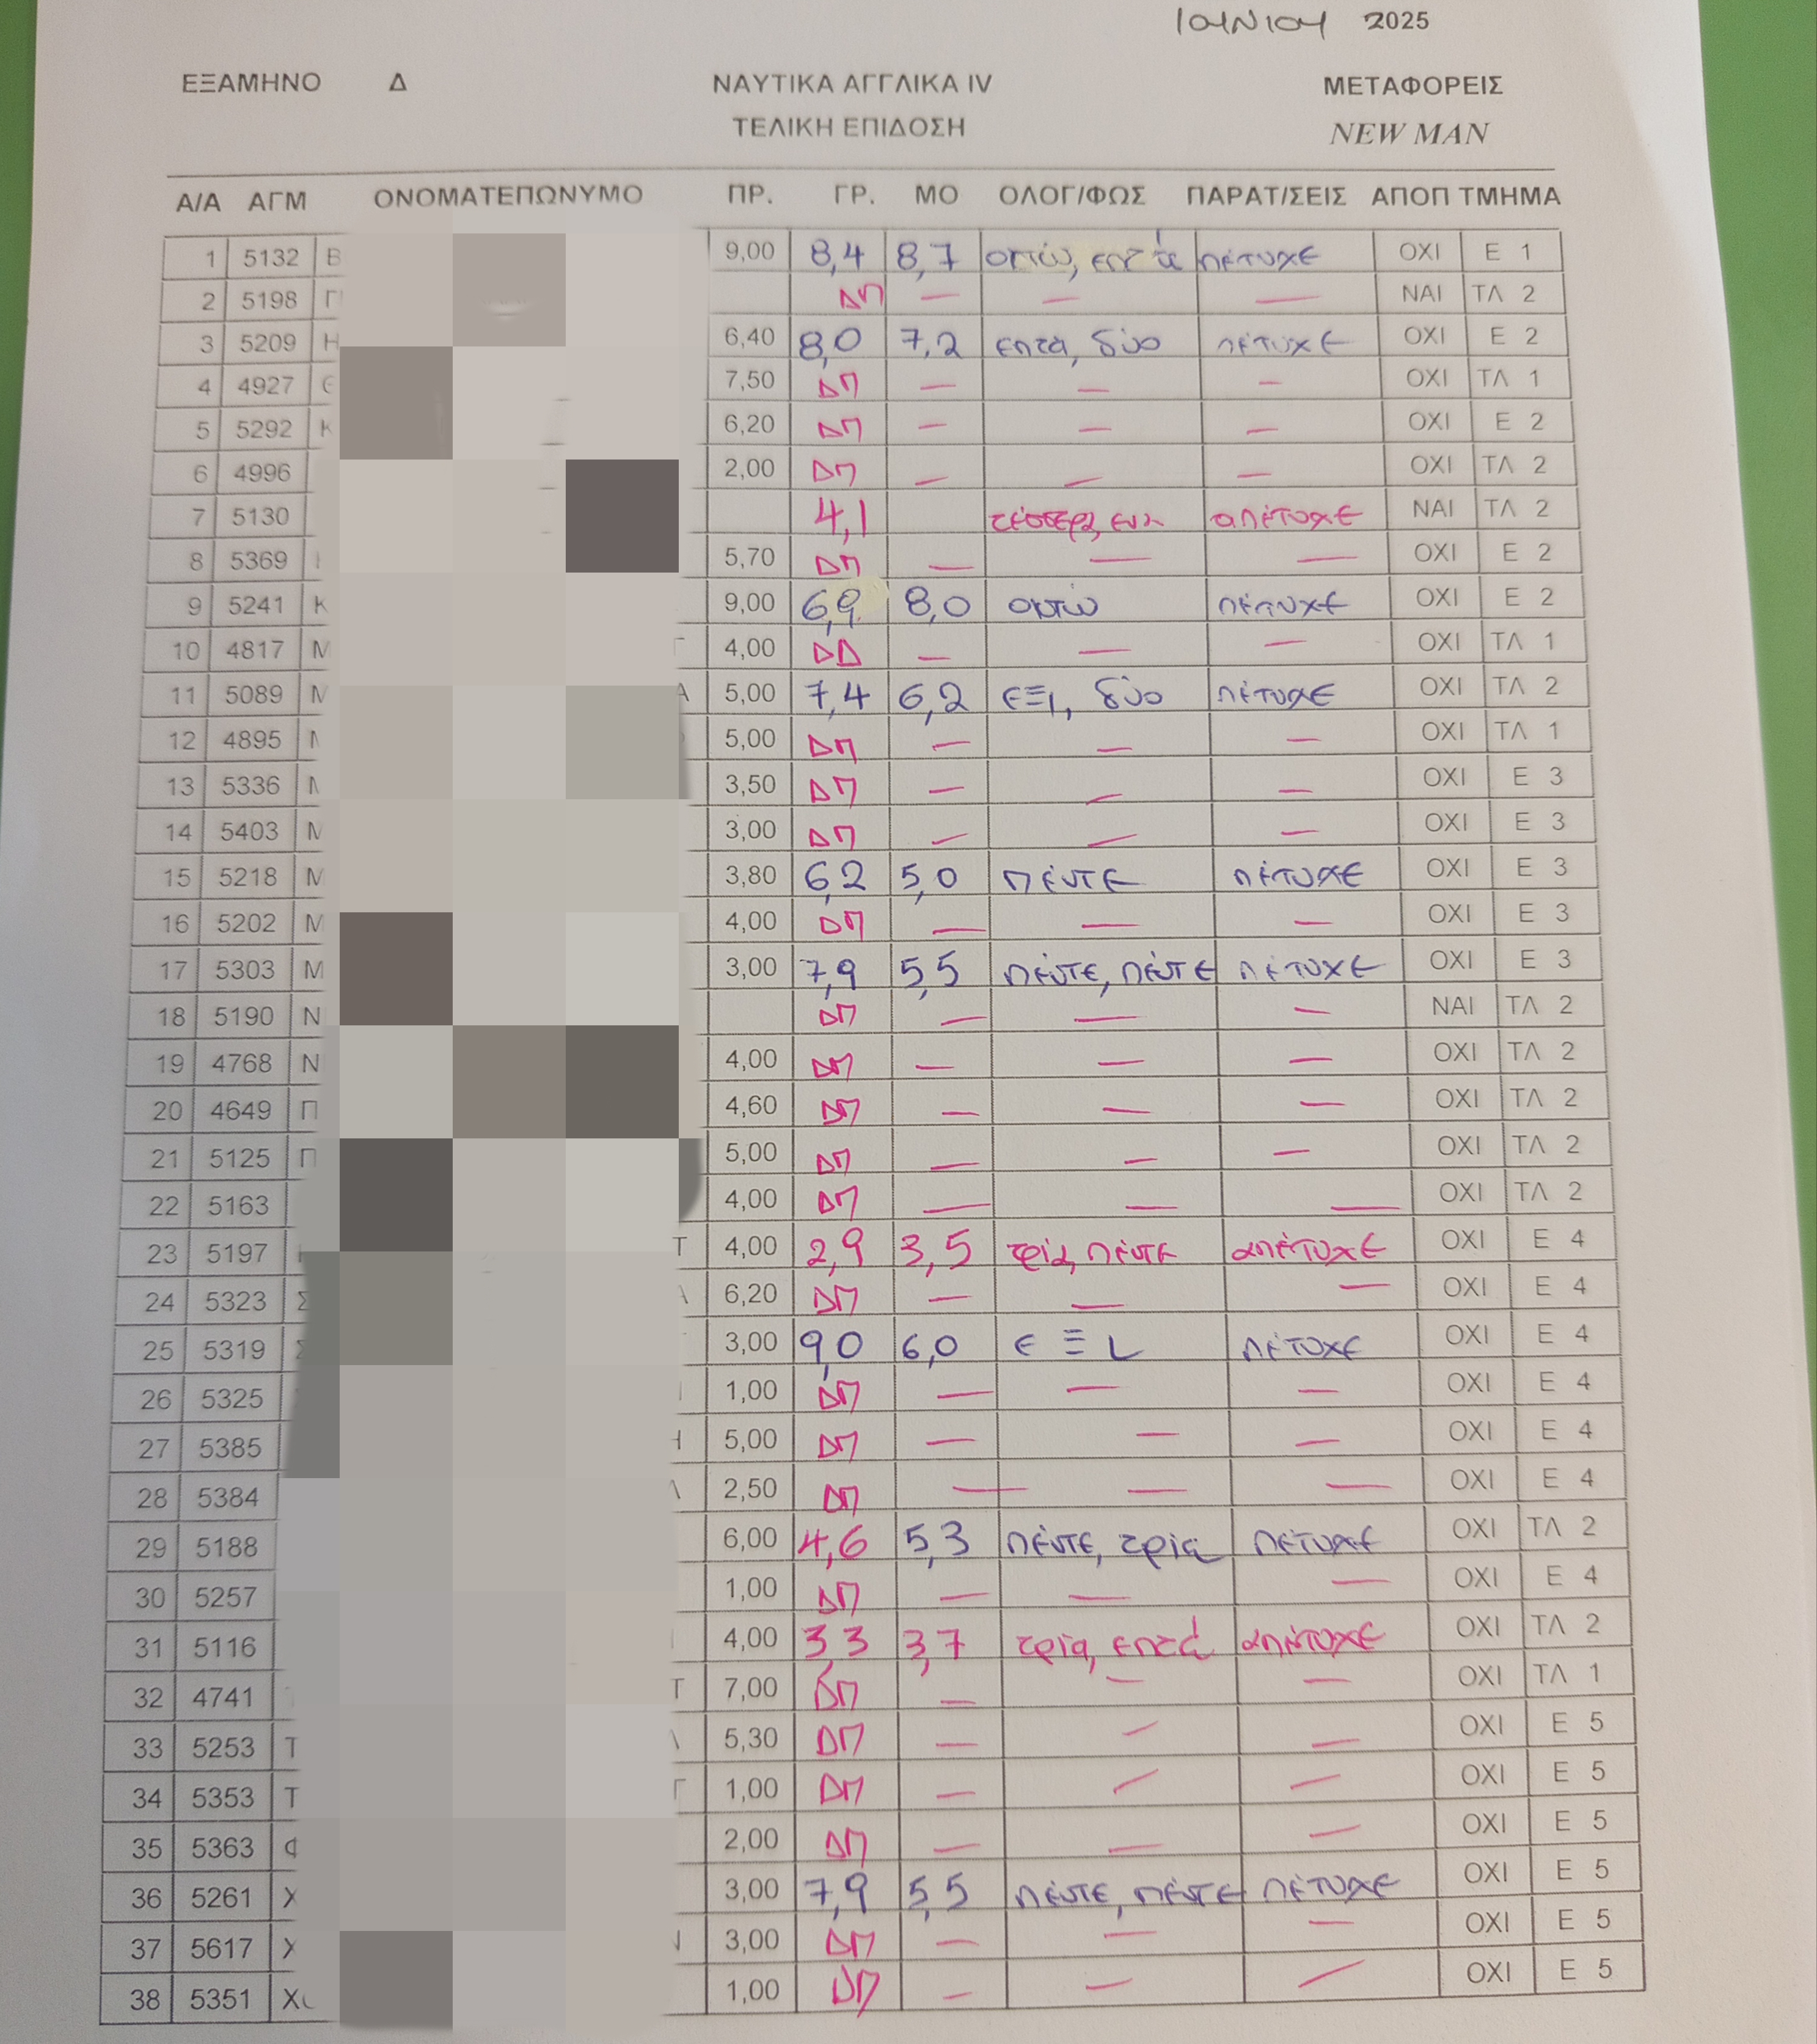 ΙΟΥΝΙΟΥ 2025
ΕΞΑΜΗΝΟ Δ ΝΑΥΤΙΚΑ ΑΓΓΛΙΚΑ IV ΜΕΤΑΦΟΡΕΙΣ
ΤΕΛΙΚΗ ΕΠΙΔΟΣΗ NEW MAN
Α/Α ΑΓΜ ΟΝΟΜΑΤΕΠΩΝΥΜΟ ΠΡ. ΓΡ. ΜΟ ΟΛΟΓ/ΦΩΣ ΠΑΡΑΤ/ΣΕΙΣ ΑΠΟΠ ΤΜΗΜΑ
1 5132 Β 9,00 8,4 8,7 οπτώ, επτά πέτυχε ΟΧΙ Ε 1
2 5198 Γ ΔΠ — — — ΝΑΙ ΤΛ 2
3 5209 Η 6,40 8,0 7,2 επτά, δύο πέτυχε ΟΧΙ Ε 2
4 4927 7,50 ΔΠ — — — ΟΧΙ ΤΛ 1
5 5292 Κ 6,20 ΔΠ — — — ΟΧΙ Ε 2
6 4996 2,00 ΔΠ — — — ΟΧΙ ΤΛ 2
7 5130 4,1 τέσσερα, ένα απέτυχε ΝΑΙ ΤΛ 2
8 5369 5,70 ΔΠ — — — ΟΧΙ Ε 2
9 5241 Κ 9,00 6,9 8,0 οκτώ πέτυχε ΟΧΙ Ε 2
10 4817 Μ 4,00 ΔΔ — — — ΟΧΙ ΤΛ 1
11 5089 Μ Α 5,00 7,4 6,2 εΞι, δύο πέτυχε ΟΧΙ ΤΛ 2
12 4895 5,00 ΔΠ — — — ΟΧΙ ΤΛ 1
13 5336 3,50 ΔΠ — — — ΟΧΙ Ε 3
14 5403 Μ 3,00 ΔΠ — — — ΟΧΙ Ε 3
15 5218 Μ 3,80 6,2 5,0 πέντε πέτυχε ΟΧΙ Ε 3
16 5202 Μ 4,00 ΔΠ — — — ΟΧΙ Ε 3
17 5303 Μ 3,00 7,9 5,5 πέντε, πέντε πέτυχε ΟΧΙ Ε 3
18 5190 Ν ΔΠ — — — ΝΑΙ ΤΛ 2
19 4768 Ν 4,00 ΔΠ — — — ΟΧΙ ΤΛ 2
20 4649 Π 4,60 ΔΠ — — — ΟΧΙ ΤΛ 2
21 5125 Π 5,00 ΔΠ — — — ΟΧΙ ΤΛ 2
22 5163 4,00 ΔΠ — — — ΟΧΙ ΤΛ 2
23 5197 Τ 4,00 2,9 3,5 τρία, πέντε απέτυχε ΟΧΙ Ε 4
24 5323 Σ 6,20 ΔΠ — — — ΟΧΙ Ε 4
25 5319 Σ 3,00 9,0 6,0 εΞι πέτυχε ΟΧΙ Ε 4
26 5325 1,00 ΔΠ — — — ΟΧΙ Ε 4
27 5385 Η 5,00 ΔΠ — — — ΟΧΙ Ε 4
28 5384 2,50 ΔΠ — — — ΟΧΙ Ε 4
29 5188 6,00 4,6 5,3 πέντε, τρία πέτυχε ΟΧΙ ΤΛ 2
30 5257 1,00 ΔΠ — — — ΟΧΙ Ε 4
31 5116 4,00 3,3 3,7 τρία, επτά απέτυχε ΟΧΙ ΤΛ 2
32 4741 Τ 7,00 ΔΠ — — — ΟΧΙ ΤΛ 1
33 5253 Τ 5,30 ΔΠ — — — ΟΧΙ Ε 5
34 5353 Τ 1,00 ΔΠ — — — ΟΧΙ Ε 5
35 5363 Φ 2,00 ΔΠ — — — ΟΧΙ Ε 5
36 5261 Χ 3,00 7,9 5,5 πέντε, πέντε πέτυχε ΟΧΙ Ε 5
37 5617 Χ 3,00 ΔΠ — — — ΟΧΙ Ε 5
38 5351 Χ 1,00 ΔΠ — — — ΟΧΙ Ε 5